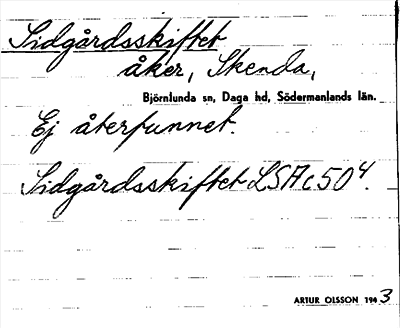 Sidgårdsskiftet
åker, Skenda,
Björnlunda sn, Daga hd, Södermanlands län.
Ej återfunnet.
Sidgårdsskiftet LSA c 50⁴.
ARTUR OLSSON 1943